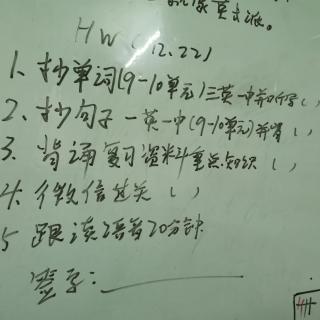 HW (12.22)
1、抄单词(9-10单元)三英一中并听写( )
2、抄句子一英一中(9-10单元)并背( )
3、背诵复习资料重点知识( )
4、微信过关( )
5 跟读语音20分钟
签字: